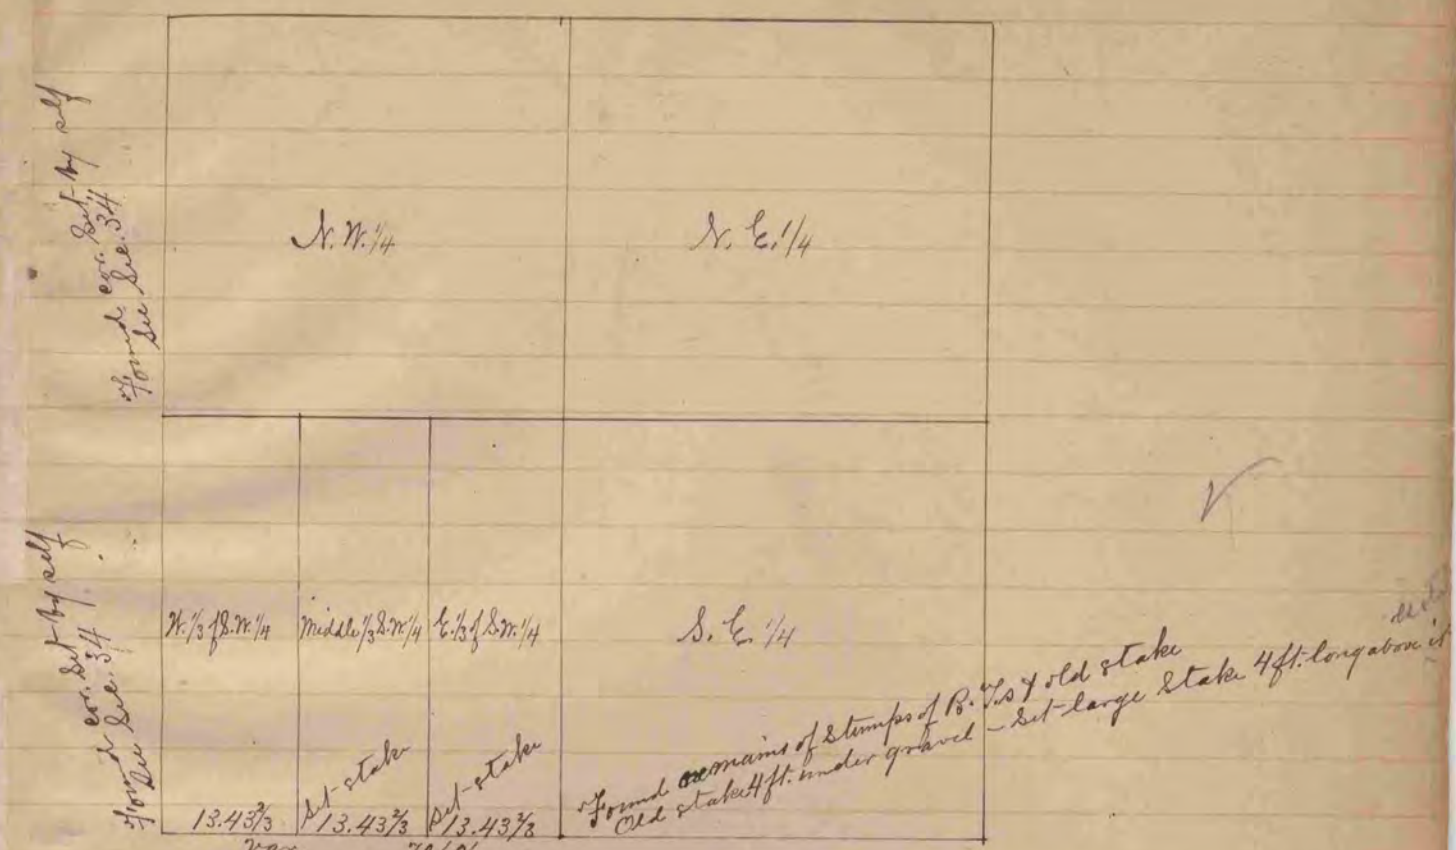 Found cor. Set by self
See Sec. 34
N.W. 1/4
N. E. 1/4
Found cor. Set by self
See Sec. 34
W. 1/3 of S.W. 1/4
Middle 1/3 S.W. 1/4
E. 1/3 of S.W. 1/4
S. E. 1/4
Set stake
Set stake
13.43 2/3
13.43 2/3
13.43 2/3
Found remains of Stumps of B. T.s & old stake
Old stake 4 ft. under gravel - Set large Stake 4 ft. long above it